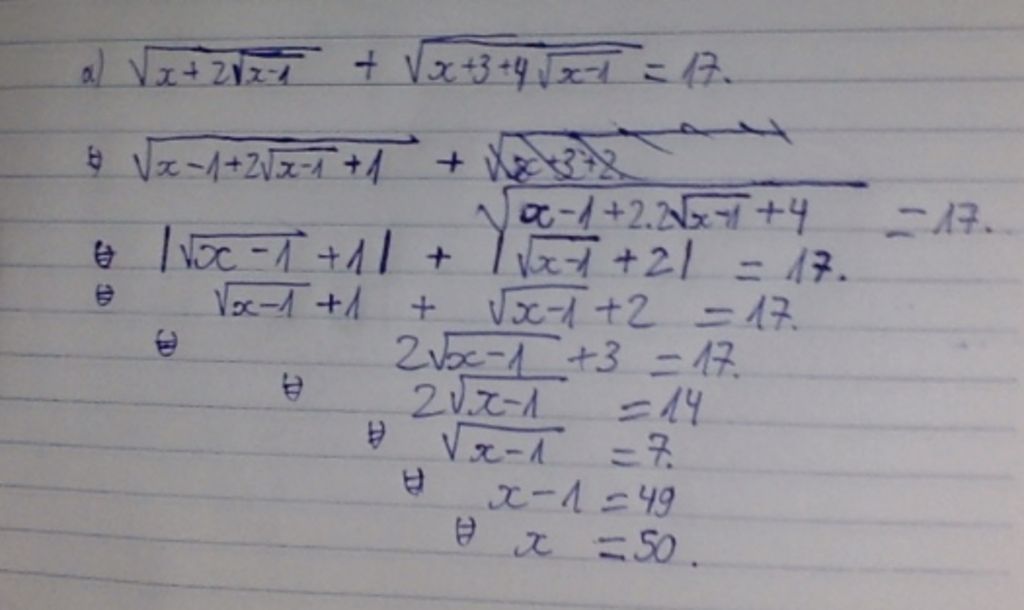 a) √(x+2√(x-1)) + √(x+3+4√(x-1)) = 17.
⇔ √(x-1+2√(x-1)+1) + √(x+3+2
√(x-1+2.2√(x-1)+4) = 17.
⇔ |√(x-1)+1| + |√(x-1)+2| = 17.
⇔ √(x-1)+1 + √(x-1)+2 = 17.
⇔ 2√(x-1)+3 = 17.
⇔ 2√(x-1) = 14
⇔ √(x-1) = 7.
⇔ x-1 = 49
⇔ x = 50.